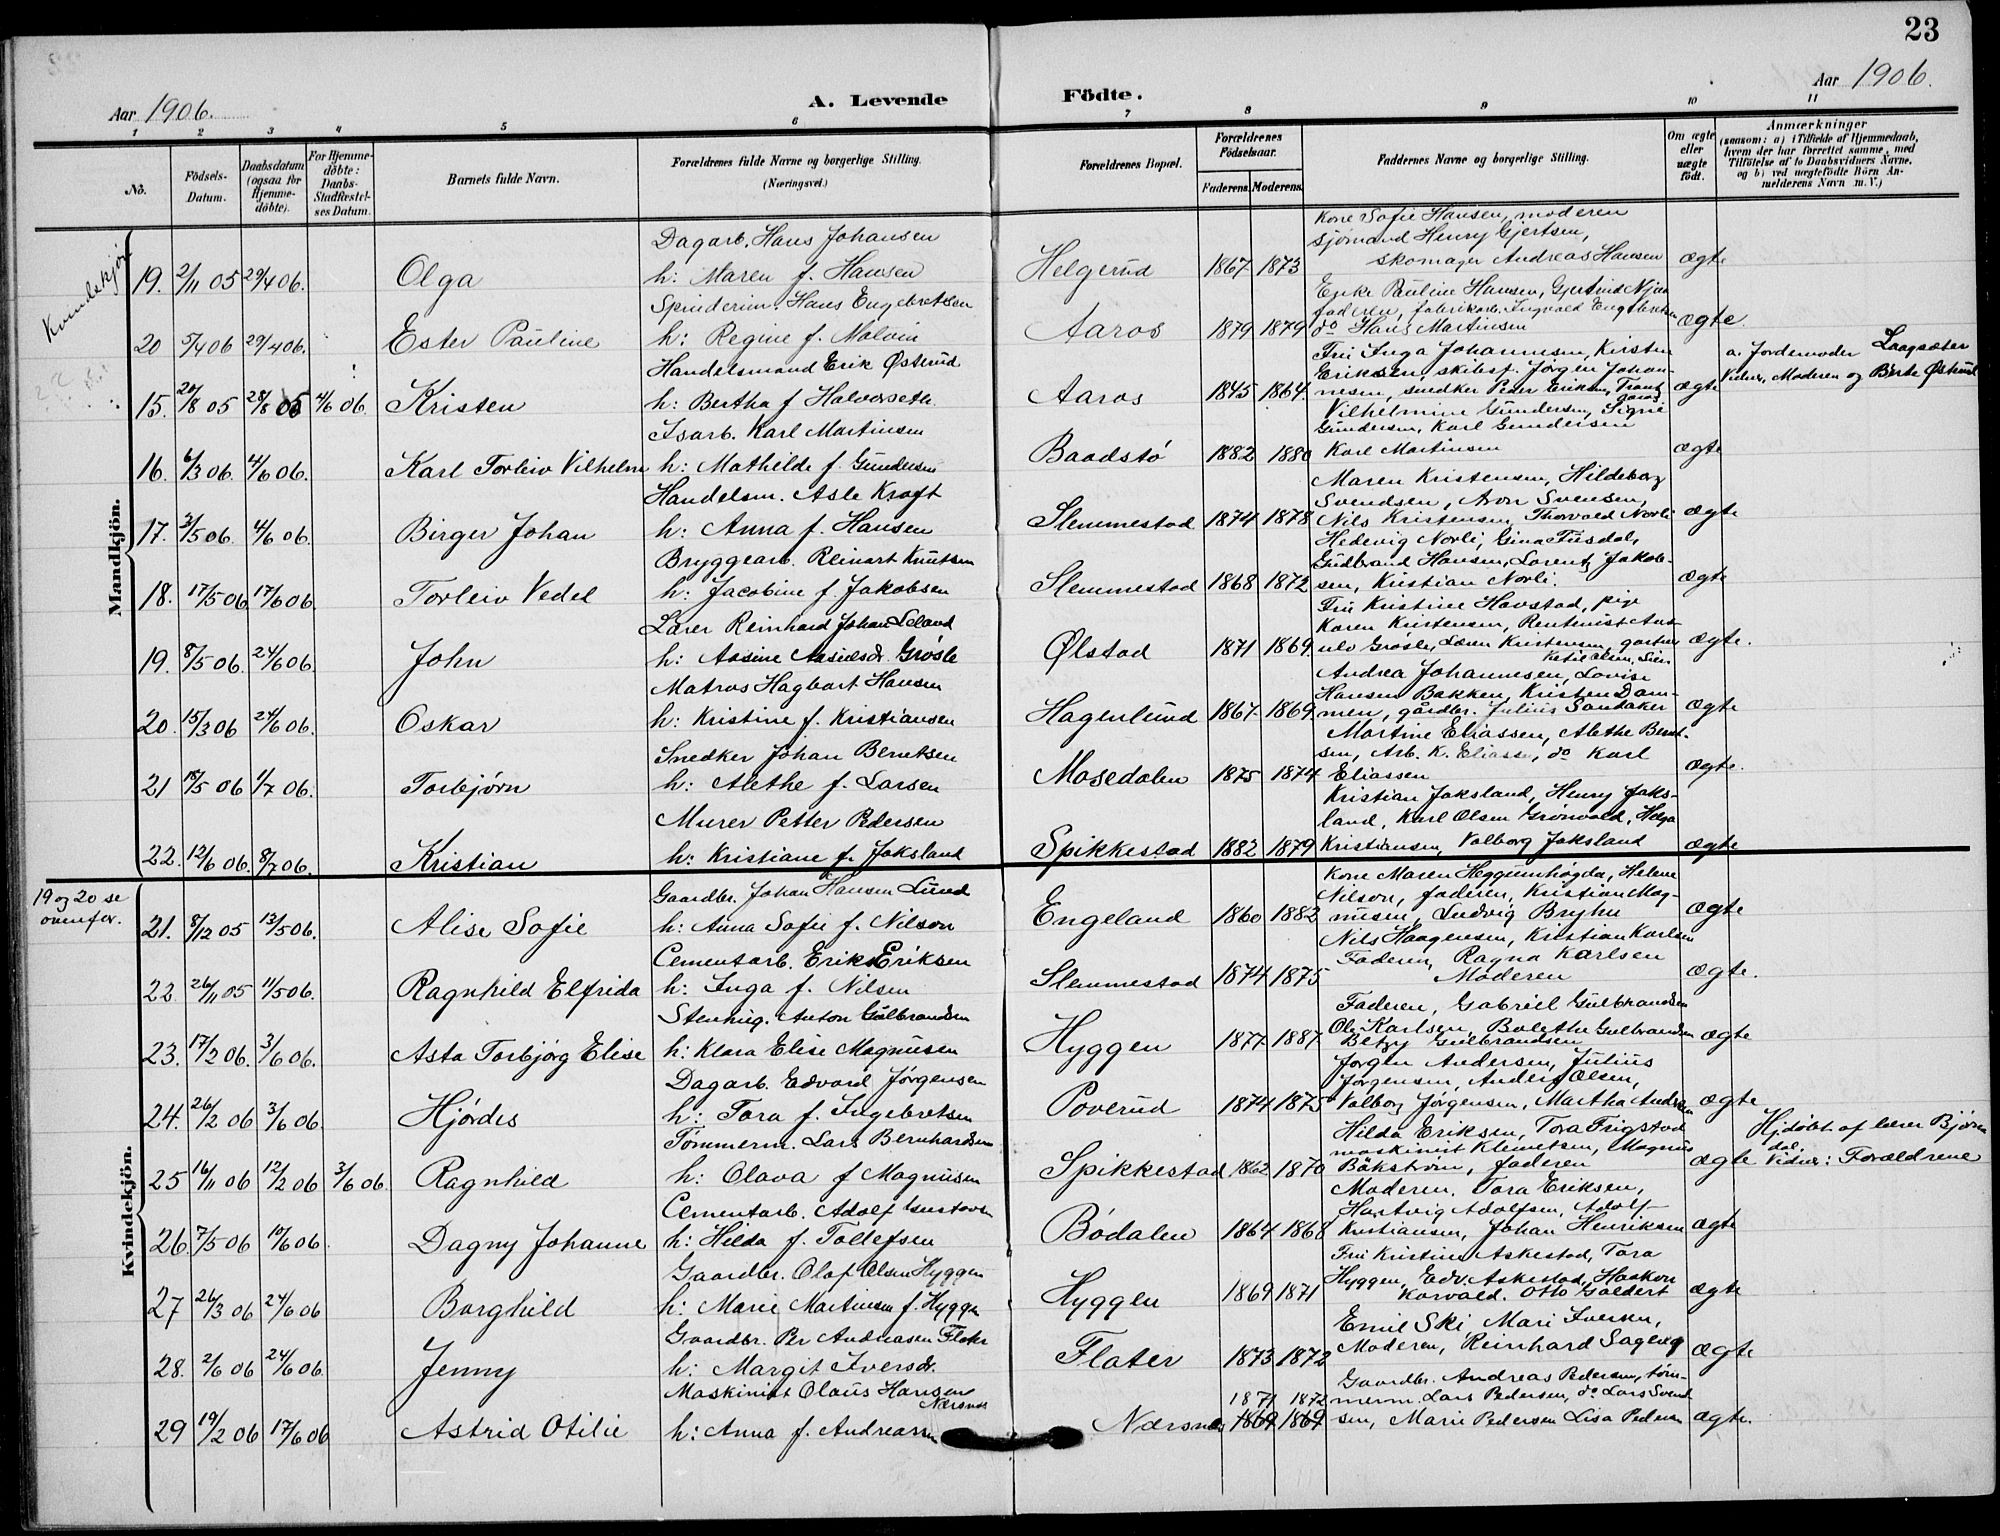 23
Aar 1906.
A. Levende Födte.
Aar 1906.
1 2 3 4 5 6 7 8 9 10 11
No.
Födsels-Datum.
Daabsdatum (ogsaa for Hjemme-döbte).
For Hjemme-döbte: Daabs-Stadfæstel-ses Datum.
Barnets fulde Navn.
Forældrenes fulde Navne og borgerlige Stilling.
(Næringsvei.)
Forældrenes Bopæl.
Forældrenes Födselsaar.
Faderens. Moderens.
Faddernes Navne og borgerlige Stilling.
Om ægte eller uægte födt.
Anmærkninger
(saasom: a) i Tilfælde af Hjemmedaab, hvem der har forrettet samme, med Tilföielse af to Daabsvidners Navne, og b) ved uægtefödte Börn An-melderens Navn m. V.)
Kvindekjøn
Mandkjön.
Dagarb. Hans Johansen
Kone Sofie Hansen, moderen
sjømand Henry Gjertsen,
19. 2/11 05 29/4 06. Olga h: Maren f. Hansen Helgerud 1867 1873 skomager Andreas Hansen ægte
Spinderim. Hans Engebretsen
Enke Pauline Hansen, Gjertrud
faderen, fabrikarb. Ingvald Engebretsen
20 5/4 06 29/4 06. Ester Pauline h: Regine f. Malvin Aaros 1879 1879 do Hans Martinsen ægte.
Handelsmand Erik Østerud
Fru Inga Johannesen, Kirsten
Eriksen skibsf. Jørgen Johan-
a. Jordemoder Laagsæter
Vidner, Moderen og Birte Østerud
15. 20/8 05 28/8 05 4/6 06. Kristen h: Bertha f Halvorseth Aaros 1845 1864 nesen, snedker Peder Eriksen, ægte
Isarb. Karl Martinsen
Vilhelmine Gundersen, Signe
Gundersen, Karl Gundersen
16. 6/3 06. 4/6 06. Karl Torleiv Vilhelm h: Mathilde f. Gundersen Baadstø 1882 1880 Karl Martinsen ægte
Handelsm. Asle Kraft
Maren Kristensen, Hildeborg
Svendsen, Svensen,
17. 3/5 06. 4/6 06. Birger Johan h: Anna f. Hansen Slemmestad 1874 1878 Nils Kristensen, Thorvald Norli ægte
Bryggearb. Reinart Knutsen
Hedevig Norli, Gina Fusdal,
Gudbrand Hansen, Lorentz Jakob-
18. 17/5 06. 17/6 06. Torleiv Vedel h: Jacobine f. Jakobsen Slemmestad 1868 1872 sen, Kristian Norli. ægte
Lærer Reinhard Johan Leland
Fru Kristine Havstad, pige
Karen Kristensen, Rentenist
19. 8/5 06. 24/6 06. John h: Aasine Grøsle Ølstad 1871 1869. Grøsle, Læren Kristensen, ægte.
Matros Hagbart Hansen
Andrea Johannesen, Lovise
Hansen Bakken, Kristen Dam-
20. 15/3 06 24/6 06. Oskar h: Kristine f. Kristiansen Hagenlund 1867. 1869 men, gårdbr. Julius Sandaker ægte
Snedker Johan Berntsen
Martine Eliassen, Alethe Bernt-
sen, Arb. K. Eliassen, do Karl
21 18/5 06 1/7 06. Torbjørn h: Alethe f. Larsen Mosedalen 1875 1874 Eliassen ægte.
Murer Petter Pedersen
Kristian Joksland, Henry Joks-
land, Karl Olsen Grønvold, Helga
22. 12/6 06. 8/7 06. Kristian h: Kristiane f. Joksland Spikkestad 1882 1879 Kristiansen, Valborg Joksland ægte
19 og 20 se ovenfor.
Kvindekjön.
Gaardbr. Johan Hansen Lund
Kone Maren Heggumhøgda, Helene
Nilson, faderen, Kristian Mag-
21. 8/12 05 13/5 06. Alise Sofie h: Anna Sofie f. Nilson Engeland 1860 1882 nusen, Ludvig Bryhn ægte
Cementarb. Erik Eriksen
Nils Haagensen, Kristian Karlsen
Faderen, Ragna Karlsen
22 26/11 05 11/5 06. Ragnhild Elfrida h: Inga f. Nilsen Slemmestad 1874 1875 Moderen ægte.
Stenhug. Anton Gulbrandsen
Faderen, Gabriel Gulbrandsen
Ole Karlsen, Balethe Gulbrandsen
23. 17/2 06. 3/6 06. Asta Torbjørg Elise h: Klara Elise Magnusen Hyggen 1877 1887 Betzy Gulbrandsen ægte
Dagarb. Edvard Jørgensen
Jørgen Andersen, Julius
Jørgensen, Anders Olsen,
24. 26/2 06 3/6 06. Hjørdis h: Tora f. Ingebretsen Poverud 1874 1875 Valborg Jørgensen, Martha Andersen ægte
Tømmerm. Lars Bernhardsen
Hilda Eriksen, Tora Frigstad
maskinist Klemetsen, Magnus
Hjdøbt af lærer Bjørn
dal.
25 16/11 06 12/2 06 3/6 06. Ragnhild h: Olava f Magnusen Spikkestad 1862 1870 Bäkström, faderen ægte Vidner: Forældrene
Cementarb. Adolf Gustavsen
Moderen, Tora Eriksen,
Hartvig Adolfsen, Adolf
26 7/5 06 10/6 06. Dagny Johanne h: Hilda f. Tollefsen Bødalen 1864 1868 Kristiansen, Johan Henriksen ægte
Gaardbr. Olaf Olsen Hyggen
Fru Kristine Askestad, Tora
Hyggen, Edv. Askestad, Haakon
27 26/3 06 24/6 06 Borghild h: Marie Martinsen f. Hyggen Hyggen 1869 1871 Korvald. Otto Goldert ægte
Gaardbr. Per Andreasen Flater
Emil Ski, Mari Iversen,
28. 2/6 06 24/6 06. Jenny h: Margit Iversdr. Flater 1873 1872 Moderen, Reinhard Sageng ægte
Maskinist Olaus Hansen
Nærsnes
Gaardbr. Andreas Pedersen, tøm-
1871 1872 merm. Lars Pedersen, do Lars Svend-
29 19/2 06 17/6 06 Astrid Otilie h: Anna f. Andreassen Nærsnes 1869 1869 sen, Marie Pedersen Lisa Pedersen ægte.